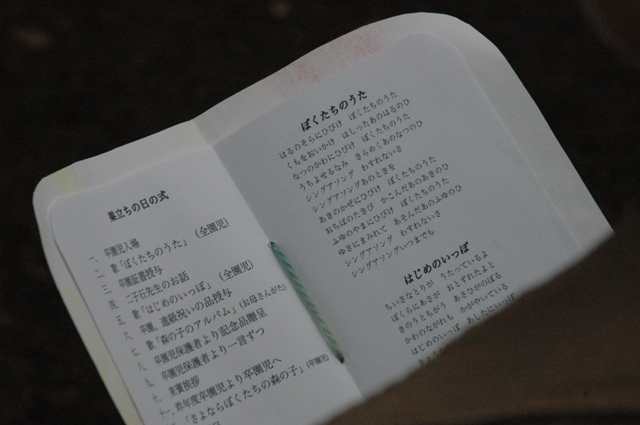 巣立ちの日の式
一、卒園児入場
二、歌「ぼくたちのうた」 (全園児)
三、卒園証書授与
四、二子石先生のお話
五、歌「はじめのいっぽ」(全園児)
六、卒園、進級祝いの品授与
七、歌「森の子のアルバム」(お母さんがた)
八、卒園児保護者より記念品贈呈
九、卒園児保護者より一言ずつ
十、来賓挨拶
十一、昨年度卒園児より卒園児へ
「さよならぼくたちの森の子」(卒園児
ぼくたちのうた
はるのそらにひびけ ぼくたちのうた
くもをおいかけ はしったあのはるのひ
なつのかわにひびけ ぼくたちのうた
うちよせるなみ きらめくあのなつのひ
シングアソング わすれないさ
シングアソングあのときを
あきのかぜにひびけ ぼくたちのうた
おちばのたきび かこんだあのあきのひ
ふゆのやまにひびけ ぼくたちのうた
ゆきにまみれて あそんだあのふゆのひ
シングアソング わすれないさ
シングアソングいつまでも
はじめのいっぽ
ちいさなとりが うたっているよ
ぼくらにあさが おとずれたよと
きのうとちがう あさひがのぼる
かわのながれも かがやいている
はじめのいっぽ あしたにいっぽ